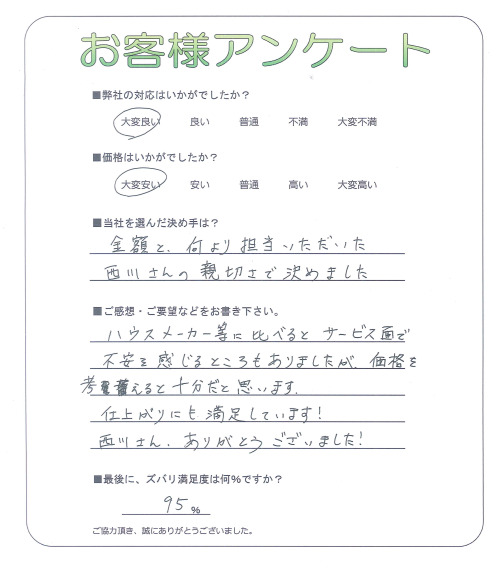 お客様アンケート
■弊社の対応はいかがでしたか？
大変良い 良い 普通 不満 大変不満
■価格はいかがでしたか？
大変安い 安い 普通 高い 大変高い
■当社を選んだ決め手は？
金額と、何より担当いただいた
西川さんの親切さで決めました
■ご感想・ご要望などをお書き下さい。
ハウスメーカー等に比べるとサービス面で
不安を感じるところもありましたが、価格を
考えると十分だと思います。
仕上がりにも満足しています！
西川さん、ありがとうございました！
■最後に、ズバリ満足度は何%ですか？
95%
ご協力頂き、誠にありがとうございました。